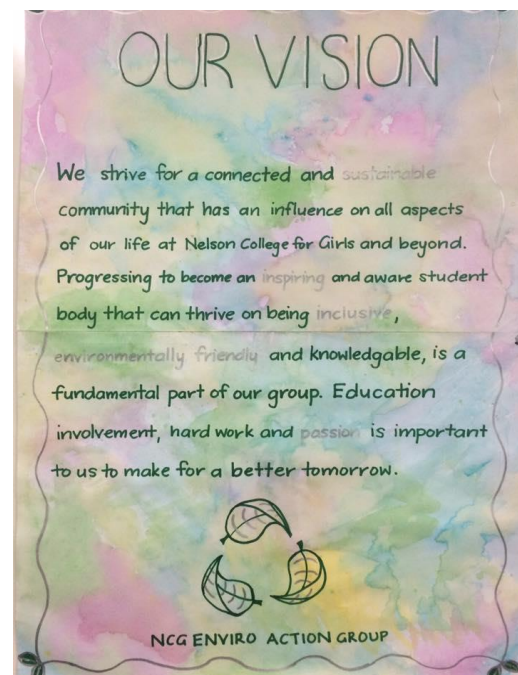 OUR VISION
We strive for a connected and sustainable
community that has an influence on all aspects
of our life at Nelson College for Girls and beyond.
Progressing to become an inspiring and aware student
body that can thrive on being inclusive,
environmentally friendly and knowledgable, is a
fundamental part of our group. Education
involvement, hard work and passion is important
to us to make for a better tomorrow.
NCG ENVIRO ACTION GROUP